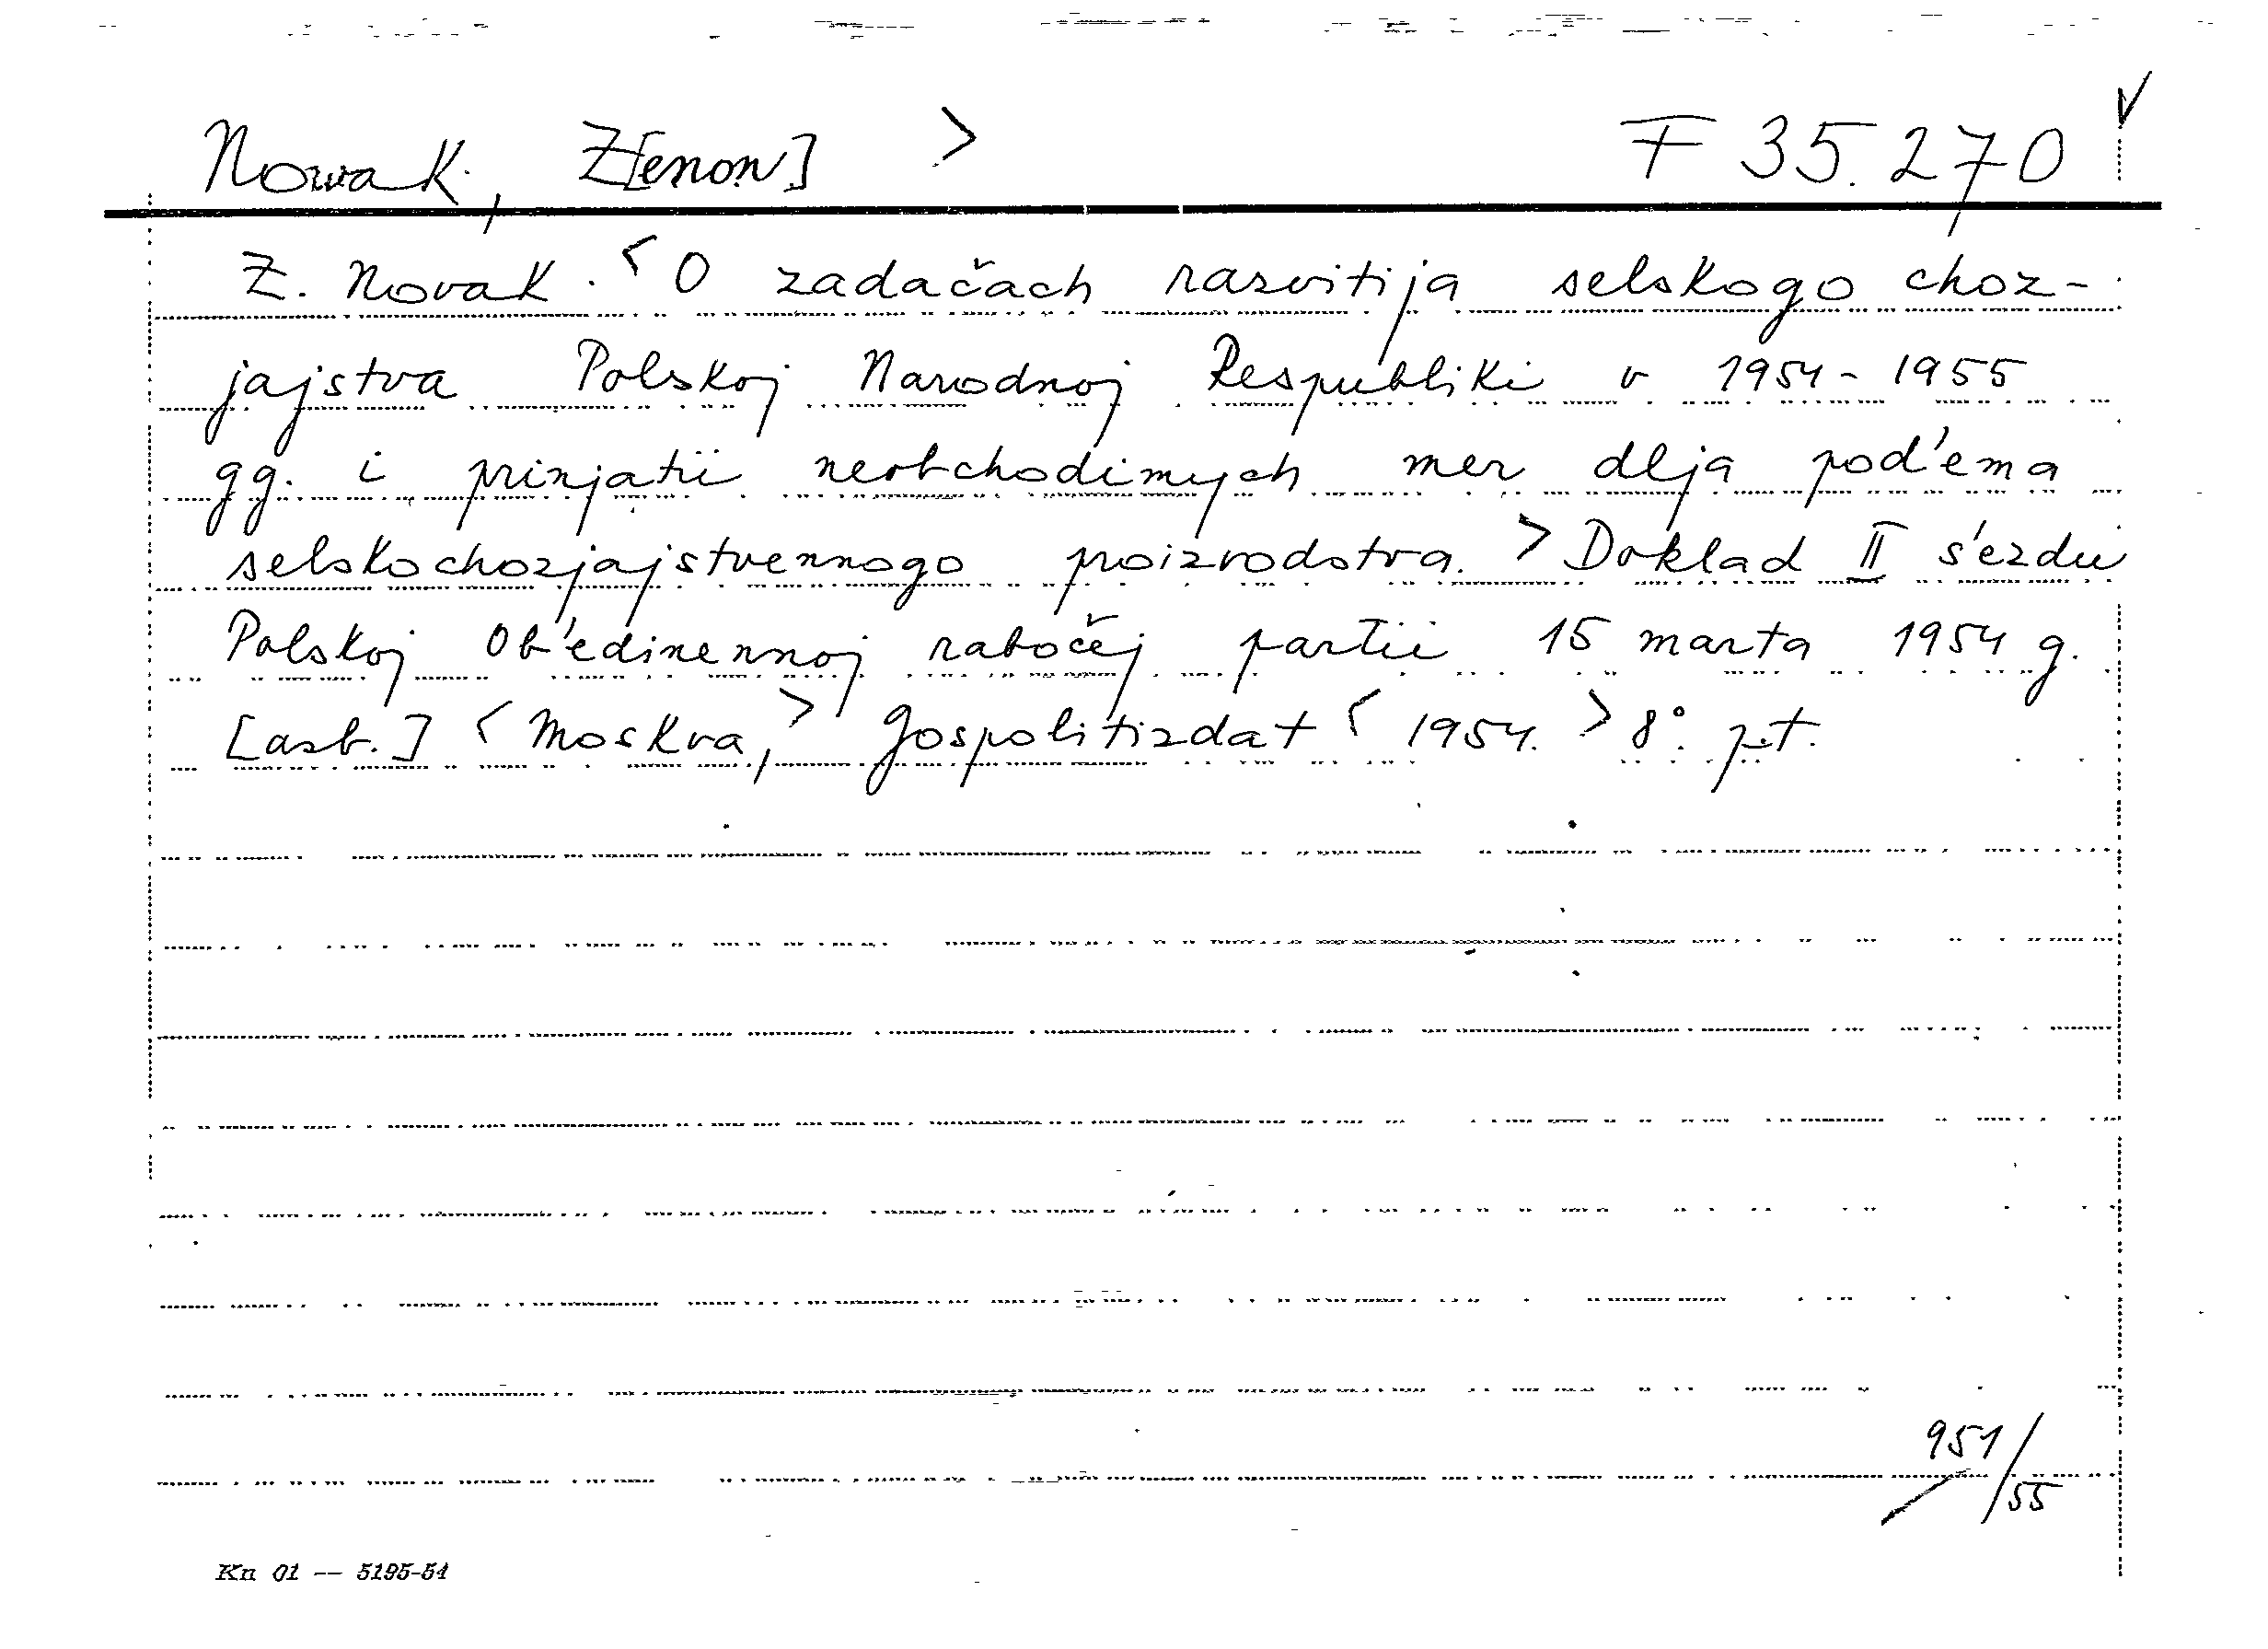 Nowak, Z[enon] > F 35.270 ✓
Z. Novak. < O zadačach razvitija selskogo choz-
jajstva Polskoj Narodnoj Respubliki v 1954-1955
gg. i prinjatii neobchodimych mer dlja pod'ema
selskochozjajstvennogo proizvodstva. > Doklad II s'ezdu
Polskoj Ob'edinennoj rabočej partii 15 marta 1954 g.
[asb.] < Moskva, > Gospolitizdat < 1954. > 8°. p.t.
951/55
Kn 01 -- 5195-54